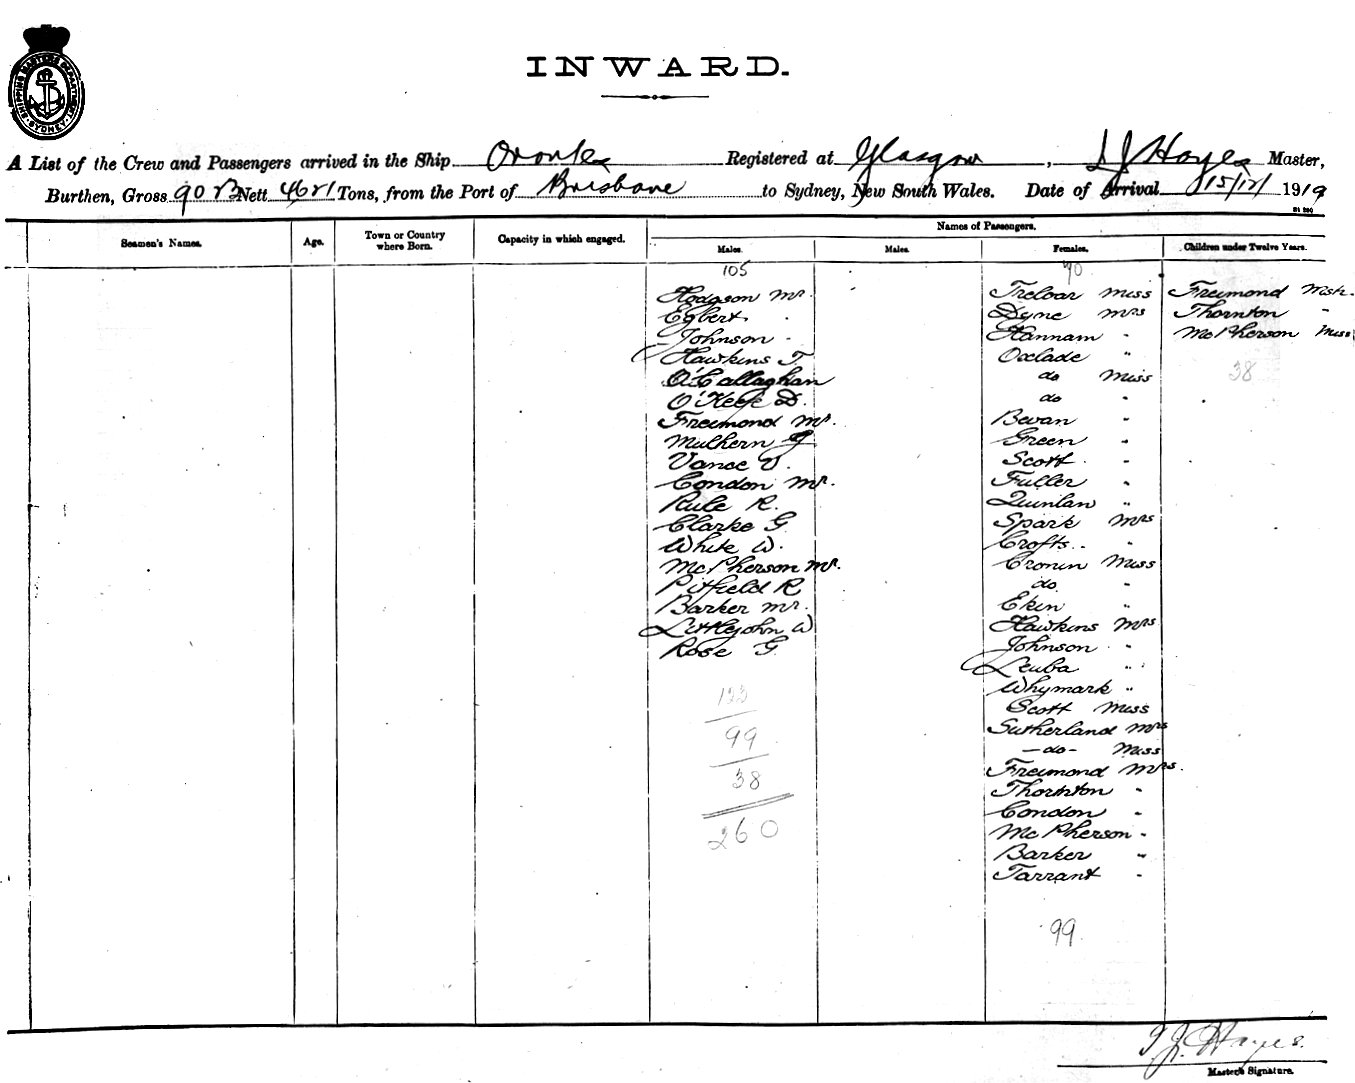 SHIPPING MASTERS DEPARTMENT
SYDNEY
INWARD.
A List of the Crew and Passengers arrived in the Ship Orontes Registered at Glasgow, Master,
Burthen, Gross Nett 4621 Tons, from the Port of Brisbane to Sydney, New South Wales. Date of Arrival 15/12/1919
Seamen's Names.
Age.
Town or Country where Born.
Capacity in which engaged.
Names of Passengers.
Males.
Males.
Females.
Children under Twelve Years.
105
Hodgson Mr.
Egbert "
Johnson "
Hawkins T.
O'Callaghan
O'Keefe D.
Freimond Mr.
Mulhern G
Vance V.
Condon Mr.
Rule R.
Clarke G
White W.
McPherson Mr.
Pitfield R
Barker Mr.
Littlejohn W
Rose G
123
99
38
260
70
Treloar Miss
Dyne Mrs
Hannam "
Oxlade "
do Miss
do "
Bevan "
Green "
Scott "
Fuller "
Quinlan "
Spark Mrs
Crofts "
Cronin Miss
do "
Ekin "
Hawkins Mrs
Johnson "
Leuba "
Whymark "
Scott Miss
Sutherland Mrs
-do- Miss
Freimond Mrs.
Thornton "
Condon "
McPherson "
Barker "
Tarrant "
99
Freimond Mstr.
Thornton "
McPherson Miss
38
Hayes.
Master's Signature.